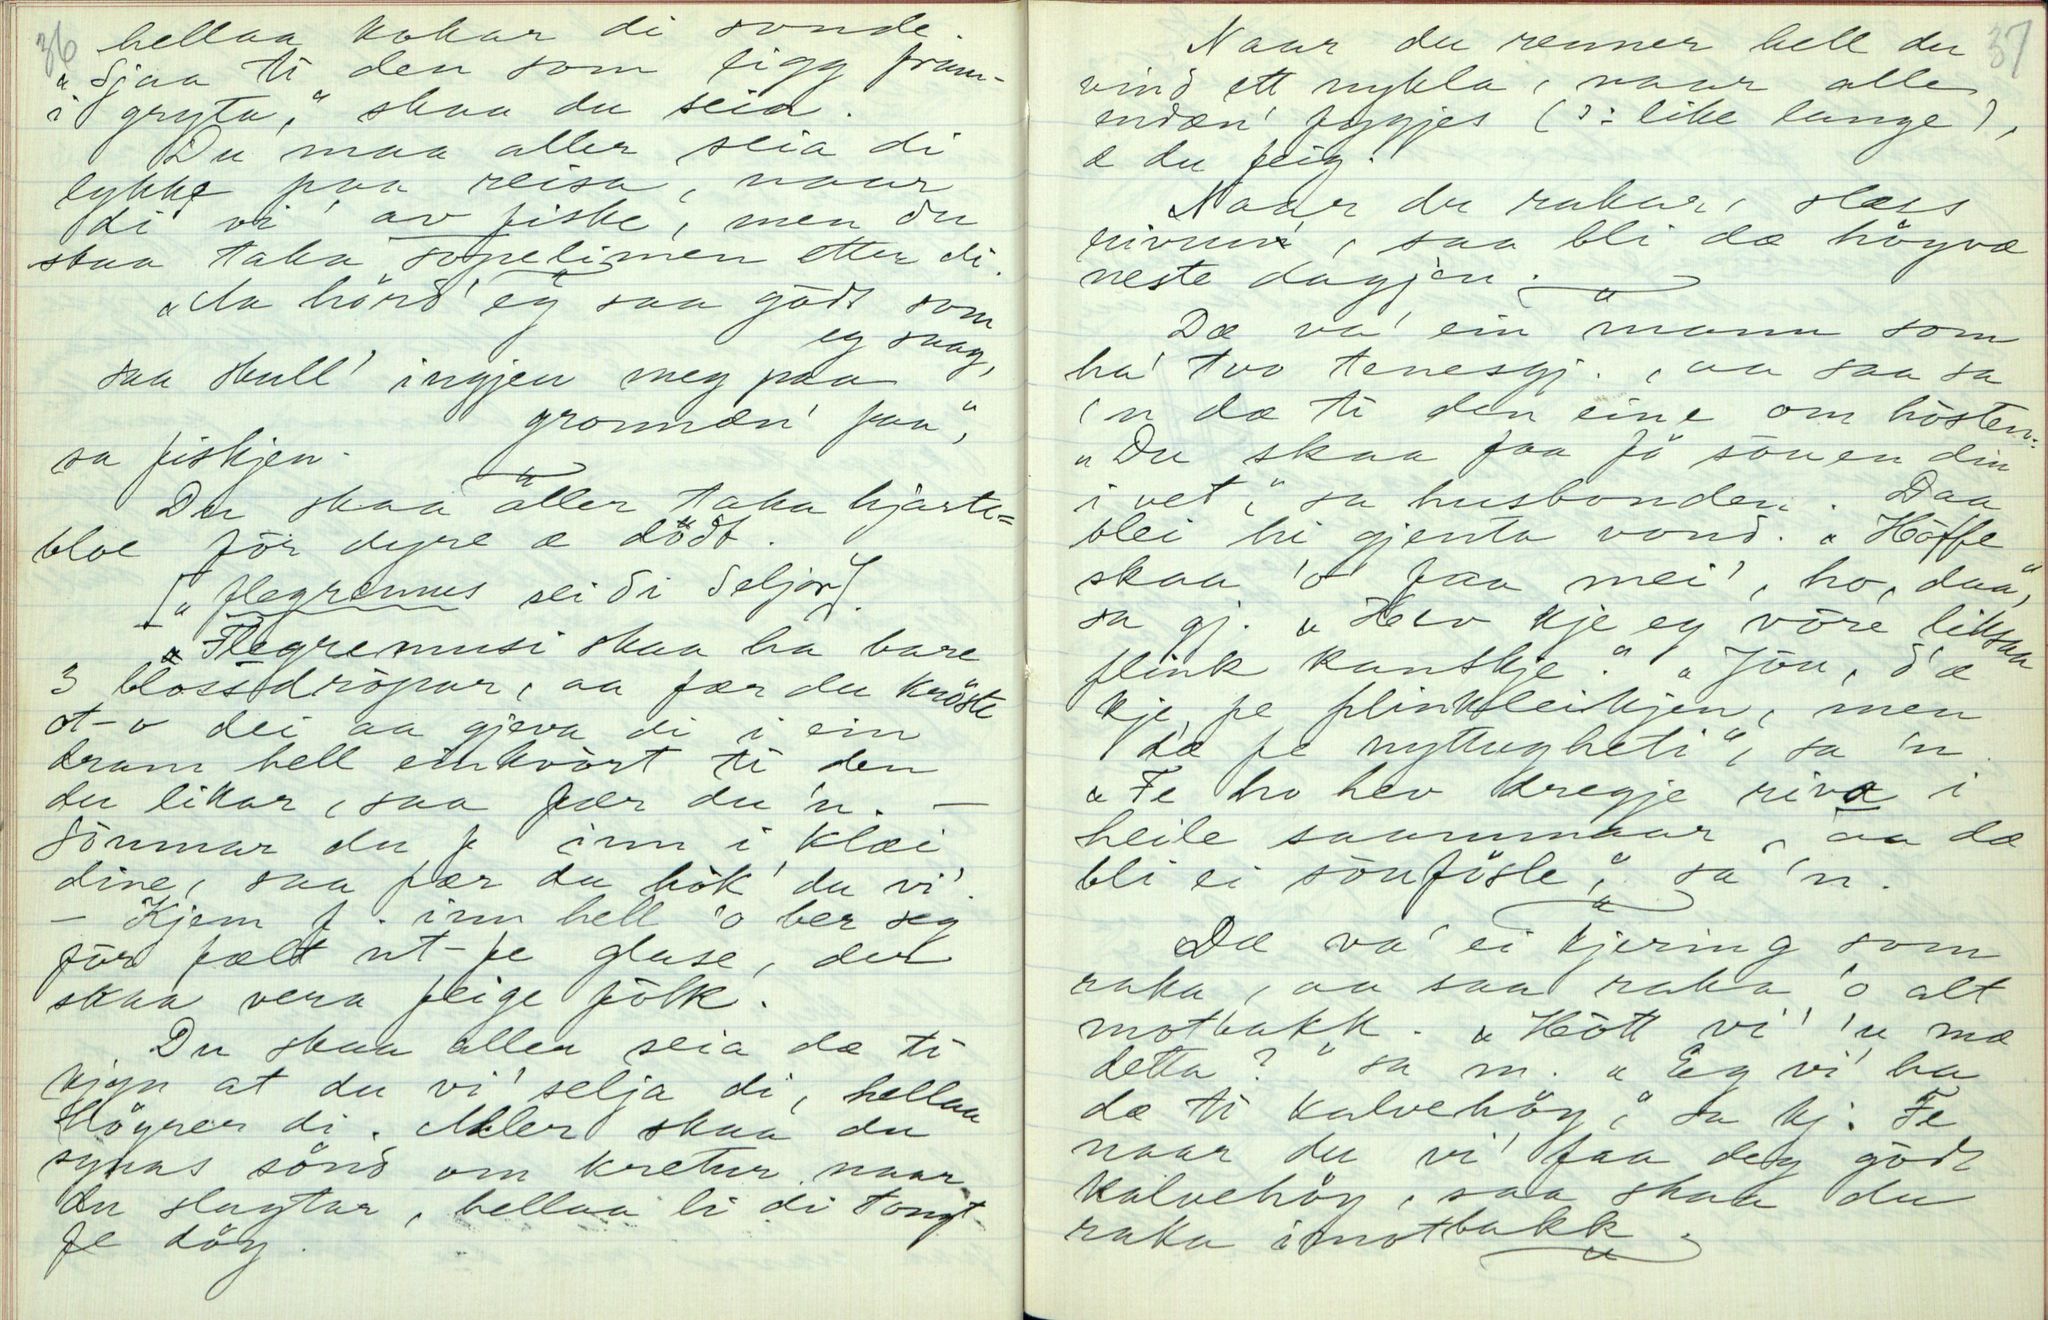 36
hellaa kokar di sonde.
"Sjaa ti den som ligg fram-
i gryta," skaa du seia.
Du maa aller seia di
lykke paa reisa, naar
di vi' av fiske, men du
skaa taka sopelimen etter di.
"Aa hörd' eg saa gödt som
eg saag,
saa skull' ingjen meg paa
gronnæn' faa",
sa fiskjen.
Du skaa aller taka hjarte=
bloe för dyre æ dödt.
["flegremus sei di Seljord].
"Flegremusi skaa ha bare
3 blossdröpar, aa fær du kröste
ot-o dei aa gjeva di i ein
dram hell einkvört ti den
du likar, saa fær du 'n. —
Sönmar du f inn i klæi
dine, saa fær du hök' du vi'.
— Kjem f. inn hell 'o ber seg
för fælt ut-fe glase, det
skaa vera feige fölk.
Du skaa aller seia dæ ti
kjyn at du vi' selja di, hellaa
Högrer di. Aller skaa du
synas sönd om kretur naar
du slagtar, hellaa li di tongt
fe döy.
37
Naar du renner hell du
vind ett nykla, naar alle
endæn' fyggjes (ɔ: like lange),
æ du feig.
Naar du rakar, slæss
rivun', saa bli dæ höyvæ
neste dagjen.
Dæ va' ein mann som
ha' tvo tenesgj., aa saa sa
'n dæ ti den eine om hösten:
"Du skaa faa fö sönen din
i vet", sa husbonden. Daa
blei hi gjenta vond. "Höffe
skaa 'o faa mei', ho, daa",
sa gj. "Hev kje eg vöre liksaa
flink kanskje." "Jöu, d'æ
kje fe flinkleikjen, men
d'æ fe nyttugheti", sa 'n.
"Fe ho hev dregje riva i
heile saammaar, aa dæ
bli ei sönfösle," sa 'n.
Dæ va' ei kjering som
raka, aa saa raka 'o alt
motbakk. "Hött vi' 'u mæ
detta?" sa m. "Eg vi' ha
dæ ti kalvehöy," sa kj. Fe
naar du vi' faa deg gödt
kalvehöy, saa skaa du
raka imotbakk.